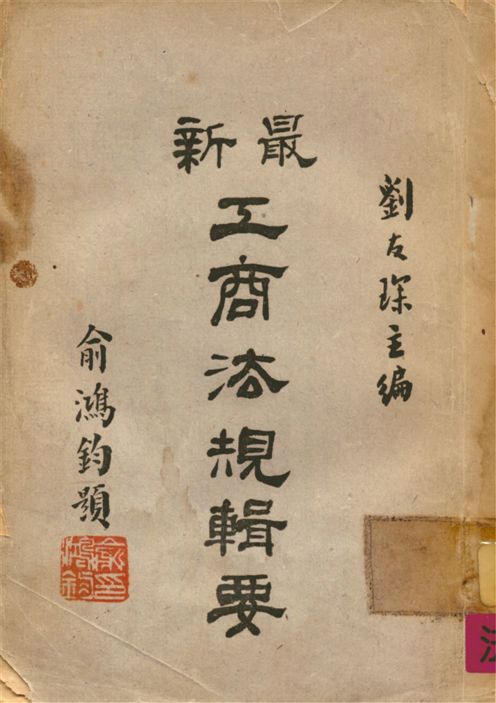 劉友琛主編
最新
工商法規輯要
俞鴻鈞題
俞鴻鈞印